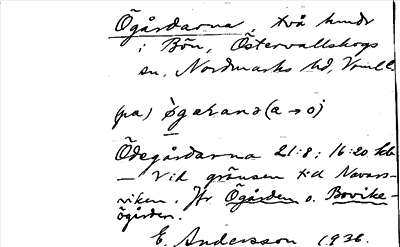 Ögårdarna, två hmdr
i Bön, Östervallskogs
sn, Nordmarks hd, Vrml.
(pa) ö̀garana (a → o)
Ödegårdarna 21:8; 16:20 kb
— Vid gränsen till Navars-
viken. Jfr Ögården o. Bovike-
ögården.
E. Andersson 1936.